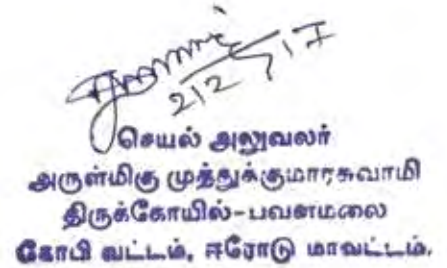 2/2/17
செயல் அலுவலர்
அருள்மிகு முத்துக்குமாரசுவாமி
திருக்கோயில்-பவளமலை
கோபி வட்டம், ஈரோடு மாவட்டம்.